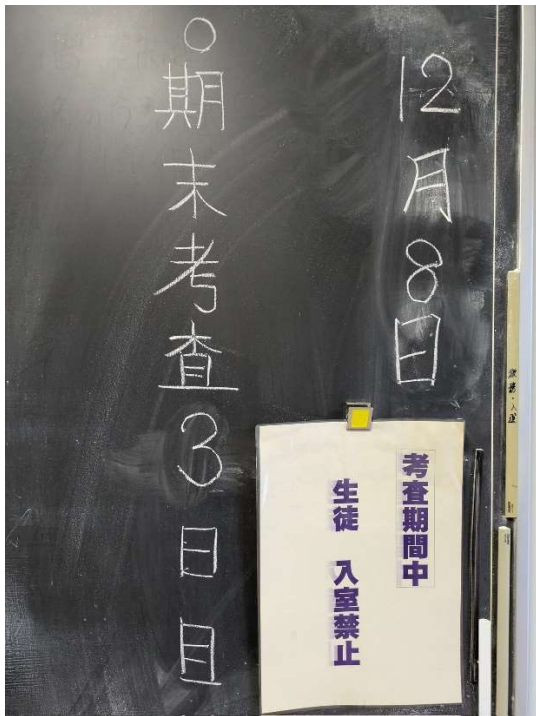 12月8日
○期末考査3日目
考査期間中
生徒 入室禁止